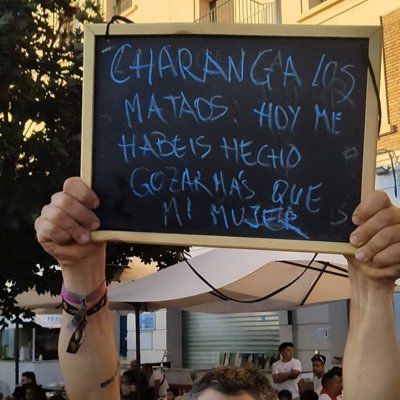 CHARANGA LOS
MATAOS: HOY ME
HABEIS HECHO
GOZAR MÁS QUE
MI MUJER